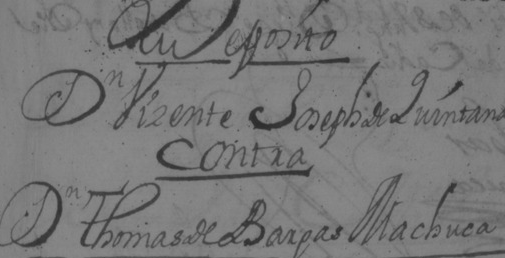 Su Deposito
Dn Vizente Joseph de Quintana
Contra
Dn Thomas de Bargas Machuca